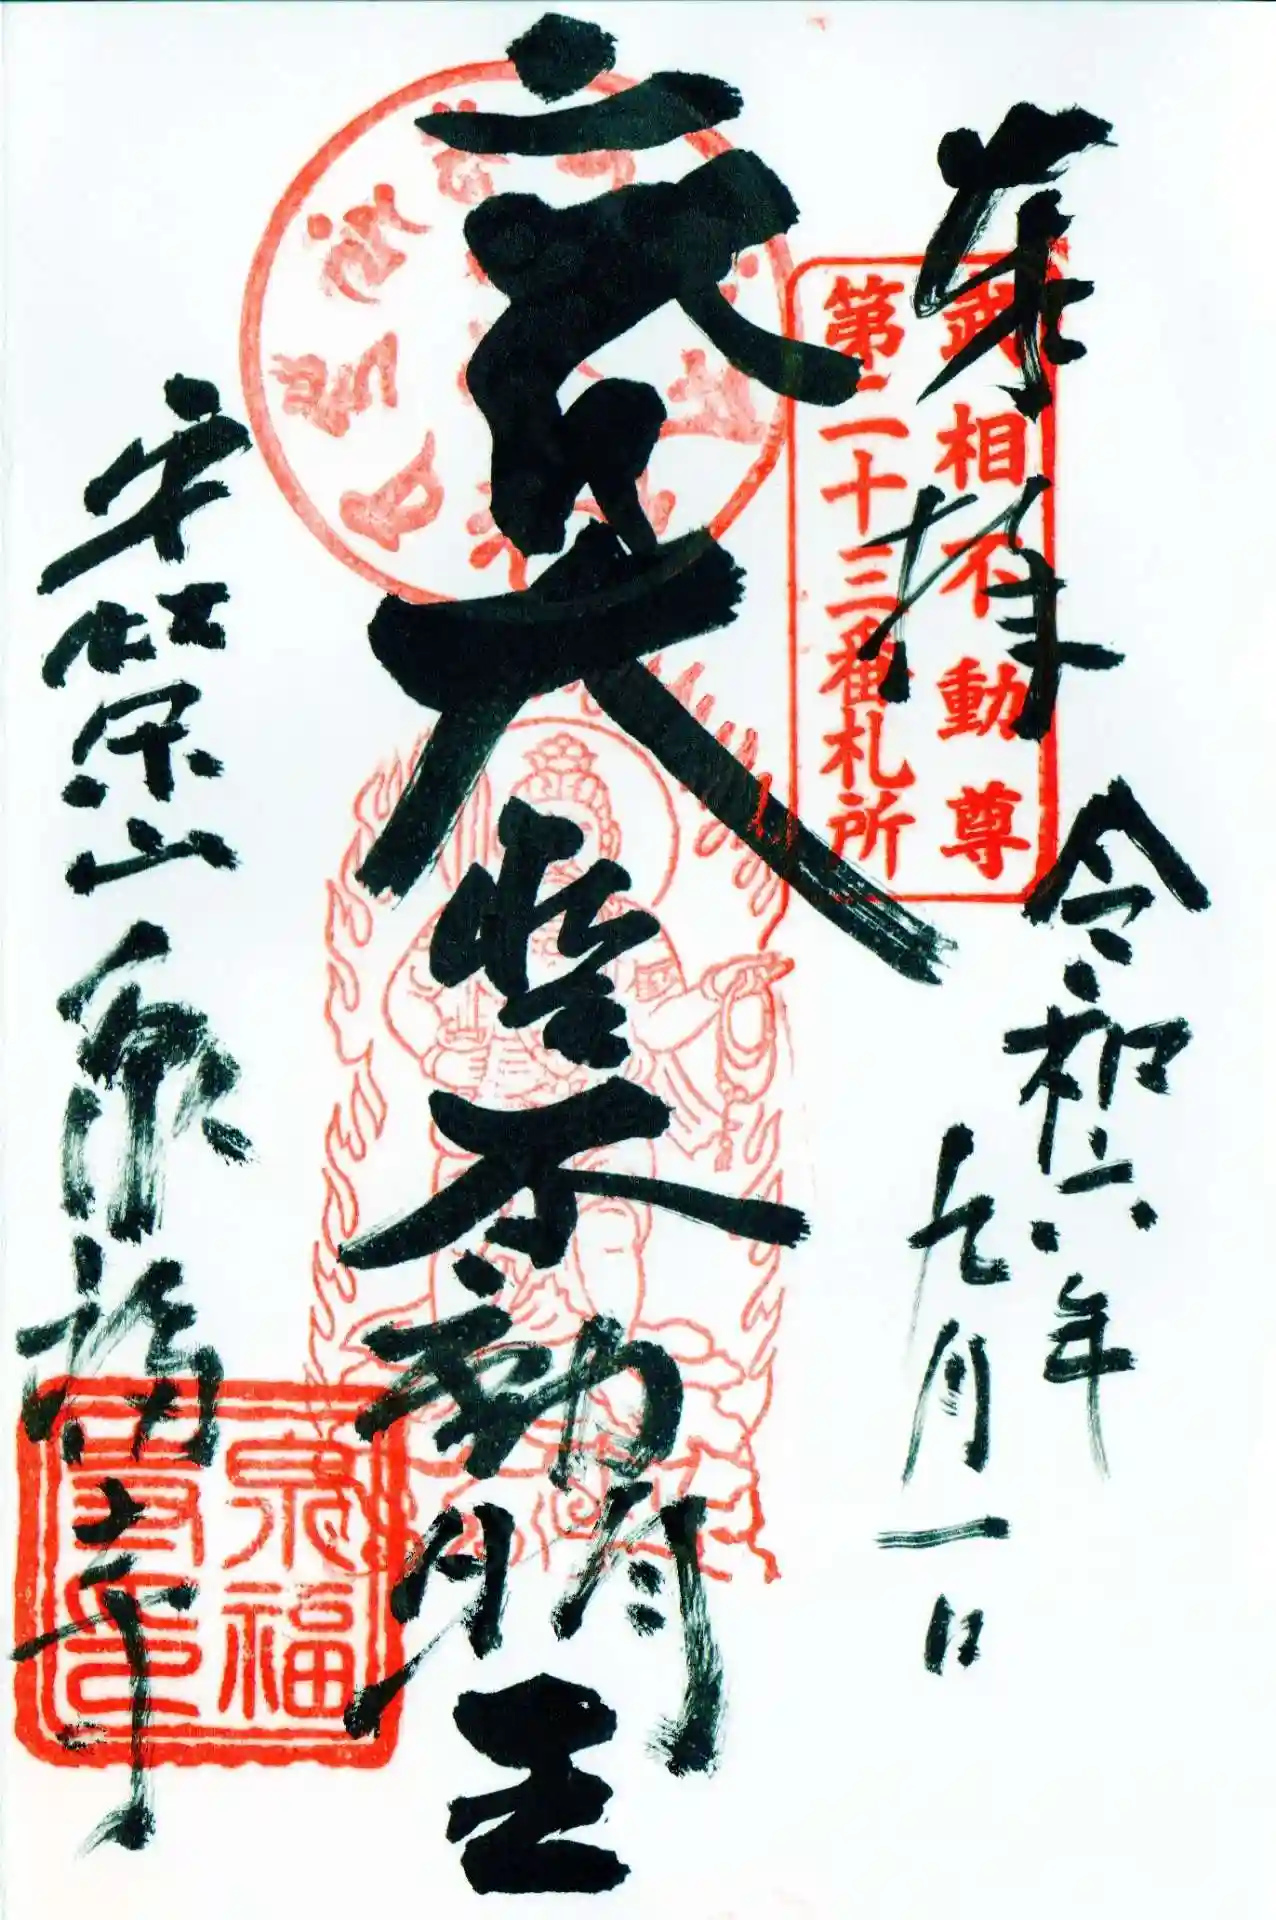 奉拝
武相不動尊
第二十三番札所
令和六年
九月一日
大聖不動明王
山泉福寺
泉福
寺印